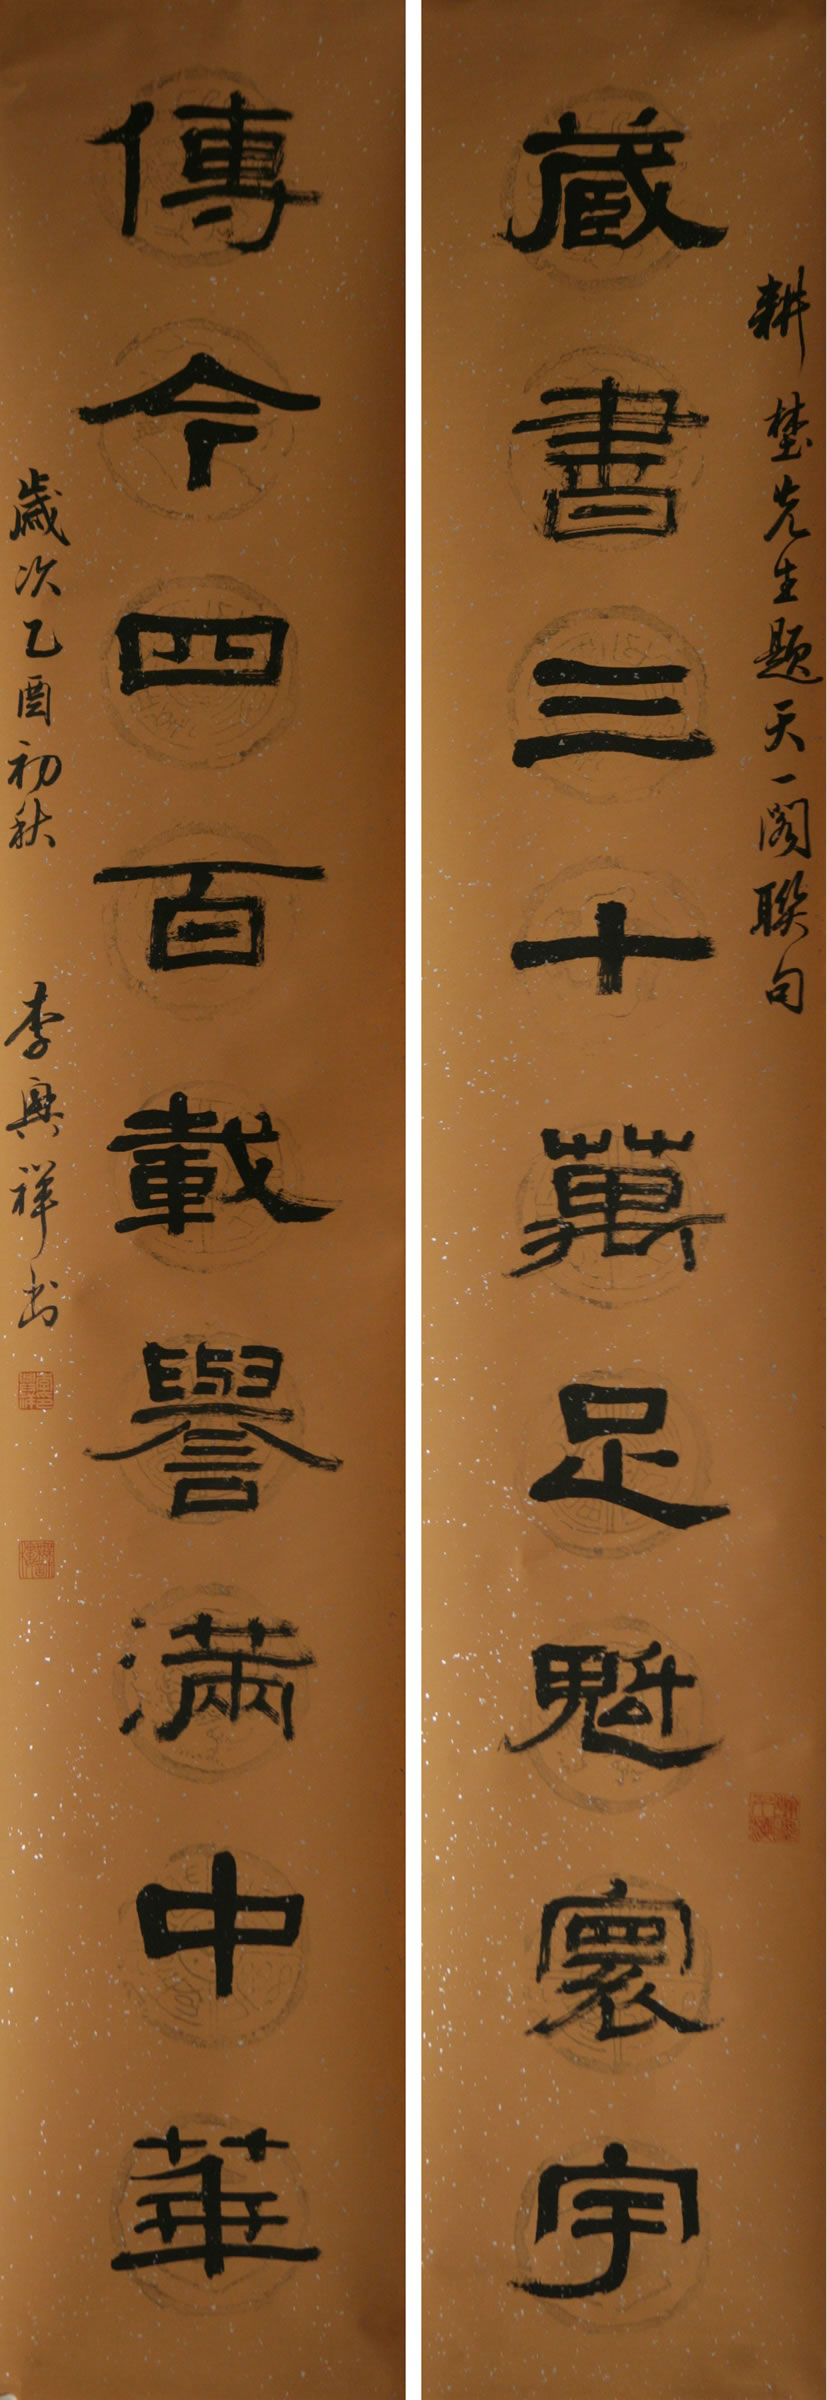 耕埜先生題天一閣聯句
藏書三十萬足魁寰宇
傳今四百載譽滿中華
歲次乙酉初秋
李興祥書